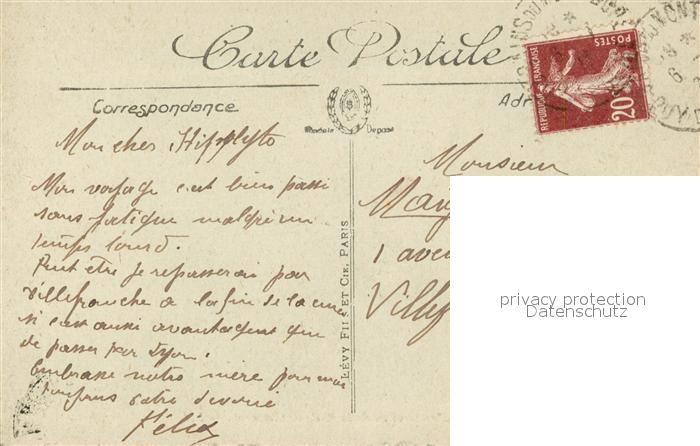 Carte Postale
Correspondance
Modèle Déposé
Adr
REPUBLIQUE FRANÇAISE
POSTES
20
Mon cher Hippolyte
Mon voyage c'est bien passé
sans fatigue malgré un
temps lourd.
Peut être je repasserai par
Villefranche à la fin de la cure
si c'est aussi avantageux que
de passer par Lyon.
Embrasse notre mère pour moi
toujours votre dévoué
Félix
LÉVY FILS ET CIE, PARIS
Monsieur
1 aven
Villef
privacy protection
Datenschutz